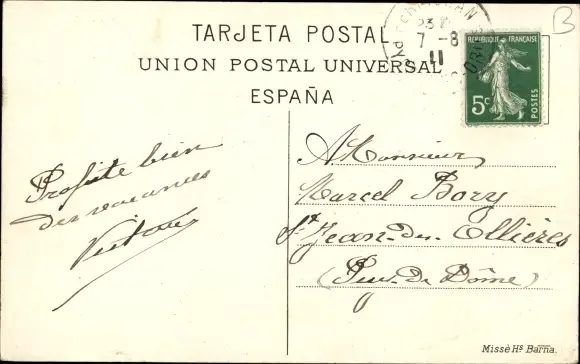 TARJETA POSTAL
UNION POSTAL UNIVERSAL
ESPAÑA
7-8
11
REPUBLIQUE FRANÇAISE
5c
POSTES
B
Profite bien
des vacances
A Monsieur
Marcel Bory
St Jean-des-Ollières
(Puy-de-Dôme)
Missé Hs Barna.